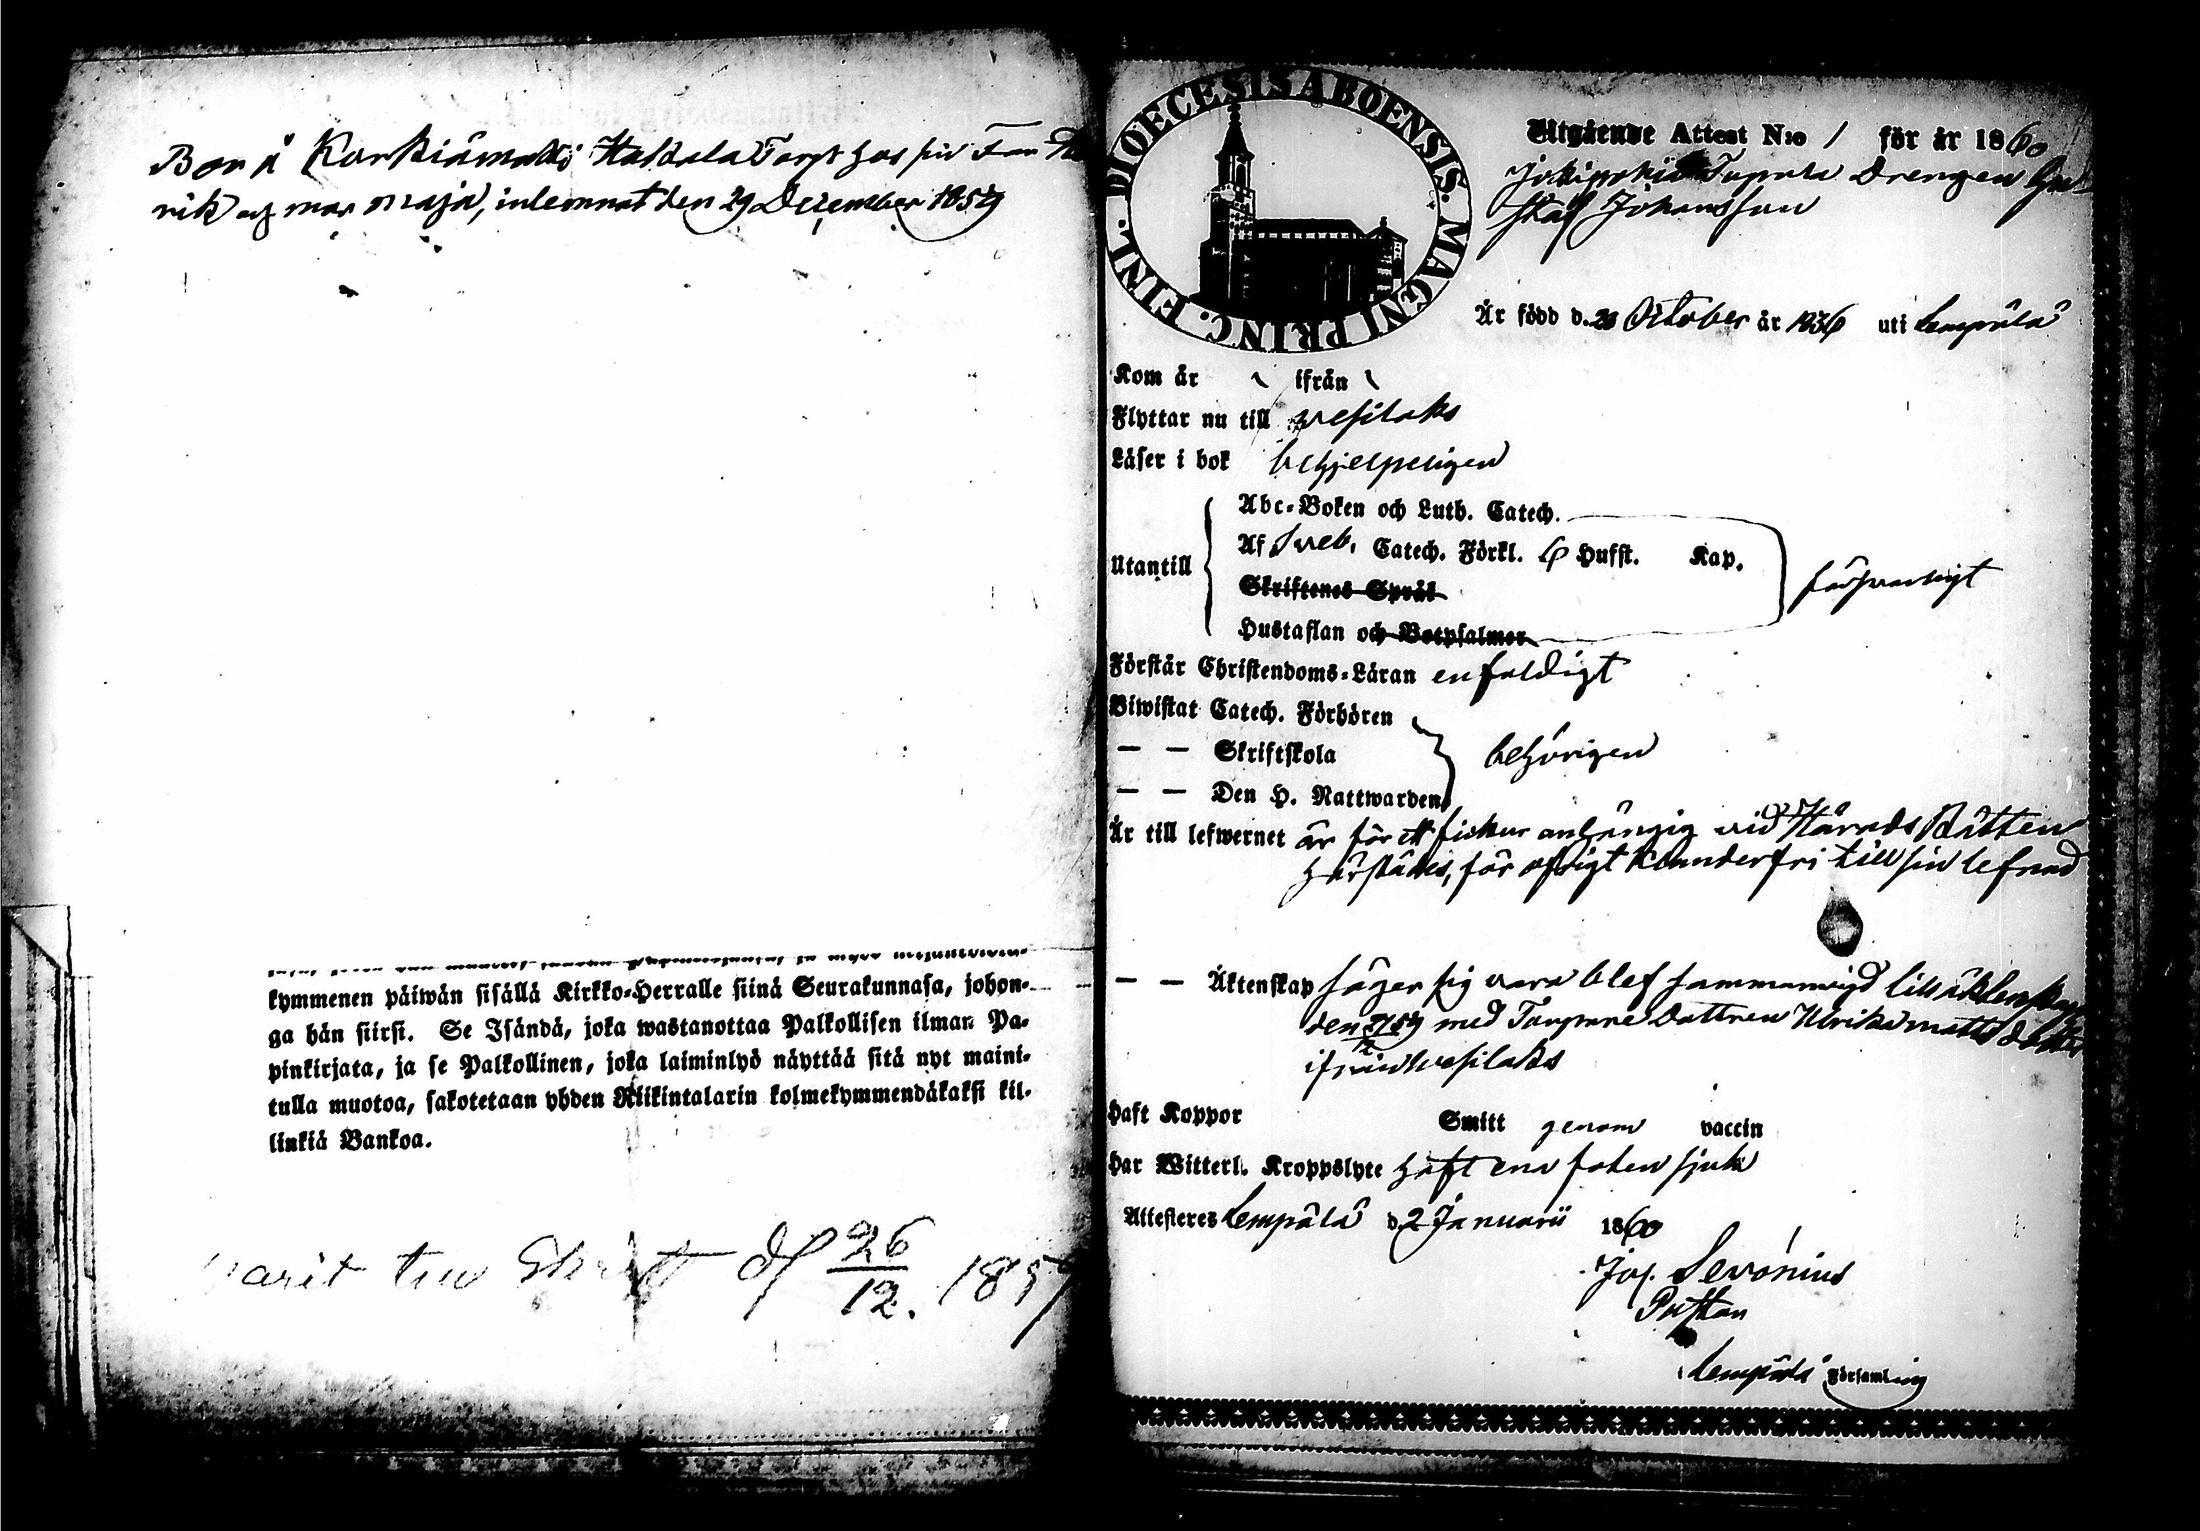 Bor å Karkiämalli Hakala Torp hos sin Far
rik och mor Maja, inlemnat den 29 December 1859
kymmenen päiwän sisällä Kirkko-Herralle siinä Seurakunnasa, johon-
ga hän siirsi. Se Isändä, joka wastanottaa Palkollisen ilman Pa-
pinkirjata, ja se Palkollinen, joka laiminlyö näyttää sitä nyt maini-
tulla muotoa, sakotetaan yhden Riikintalarin kolmekymmendäkaksi kil-
linkiä Bankoa.
warit till Skrift d 26/12. 1859
DIOECESIS ABOENSIS. MAGNI PRINC. FINL.
Utgående Attest N:o 1 för år 1860
Drengen Gu-
staf Johansson
Är född d. 26 October år 1836 uti Lempälä
Kom år ifrån
Flyttar nu till Vesilaks
Läser i bok behjelpeligen
Abc-Boken och Luth. Catech.
Utantill Af Sveb. Catech. Förkl. 6 Hufst. Kap. försvarligt
Skriftenes Språk
Hustaflan och Botpsalmer
Förstår Christendoms-Läran enfaldigt
Biwistat Catech. Förhören
— — Skriftskola behörigen
— — Den H. Nattwarden
Är till lefwernet är för anhängig vid Härads Rätten
härstädes, för öfrigt klanderfri till sin lefnad
— — Äktenskap säger sig vara blef sammanvigd till äktenskap
den med Torpare Dottren Ulrika Mattsdotter
ifrån Vesilaks
Haft Koppor Smitt genom vaccin
Har Witterl. Kroppslyte haft ena foten sjuk
Attesteres Lempälä d. 2 Januarii 1860
Jos. Servonius
Pastor
Lempälä Församling